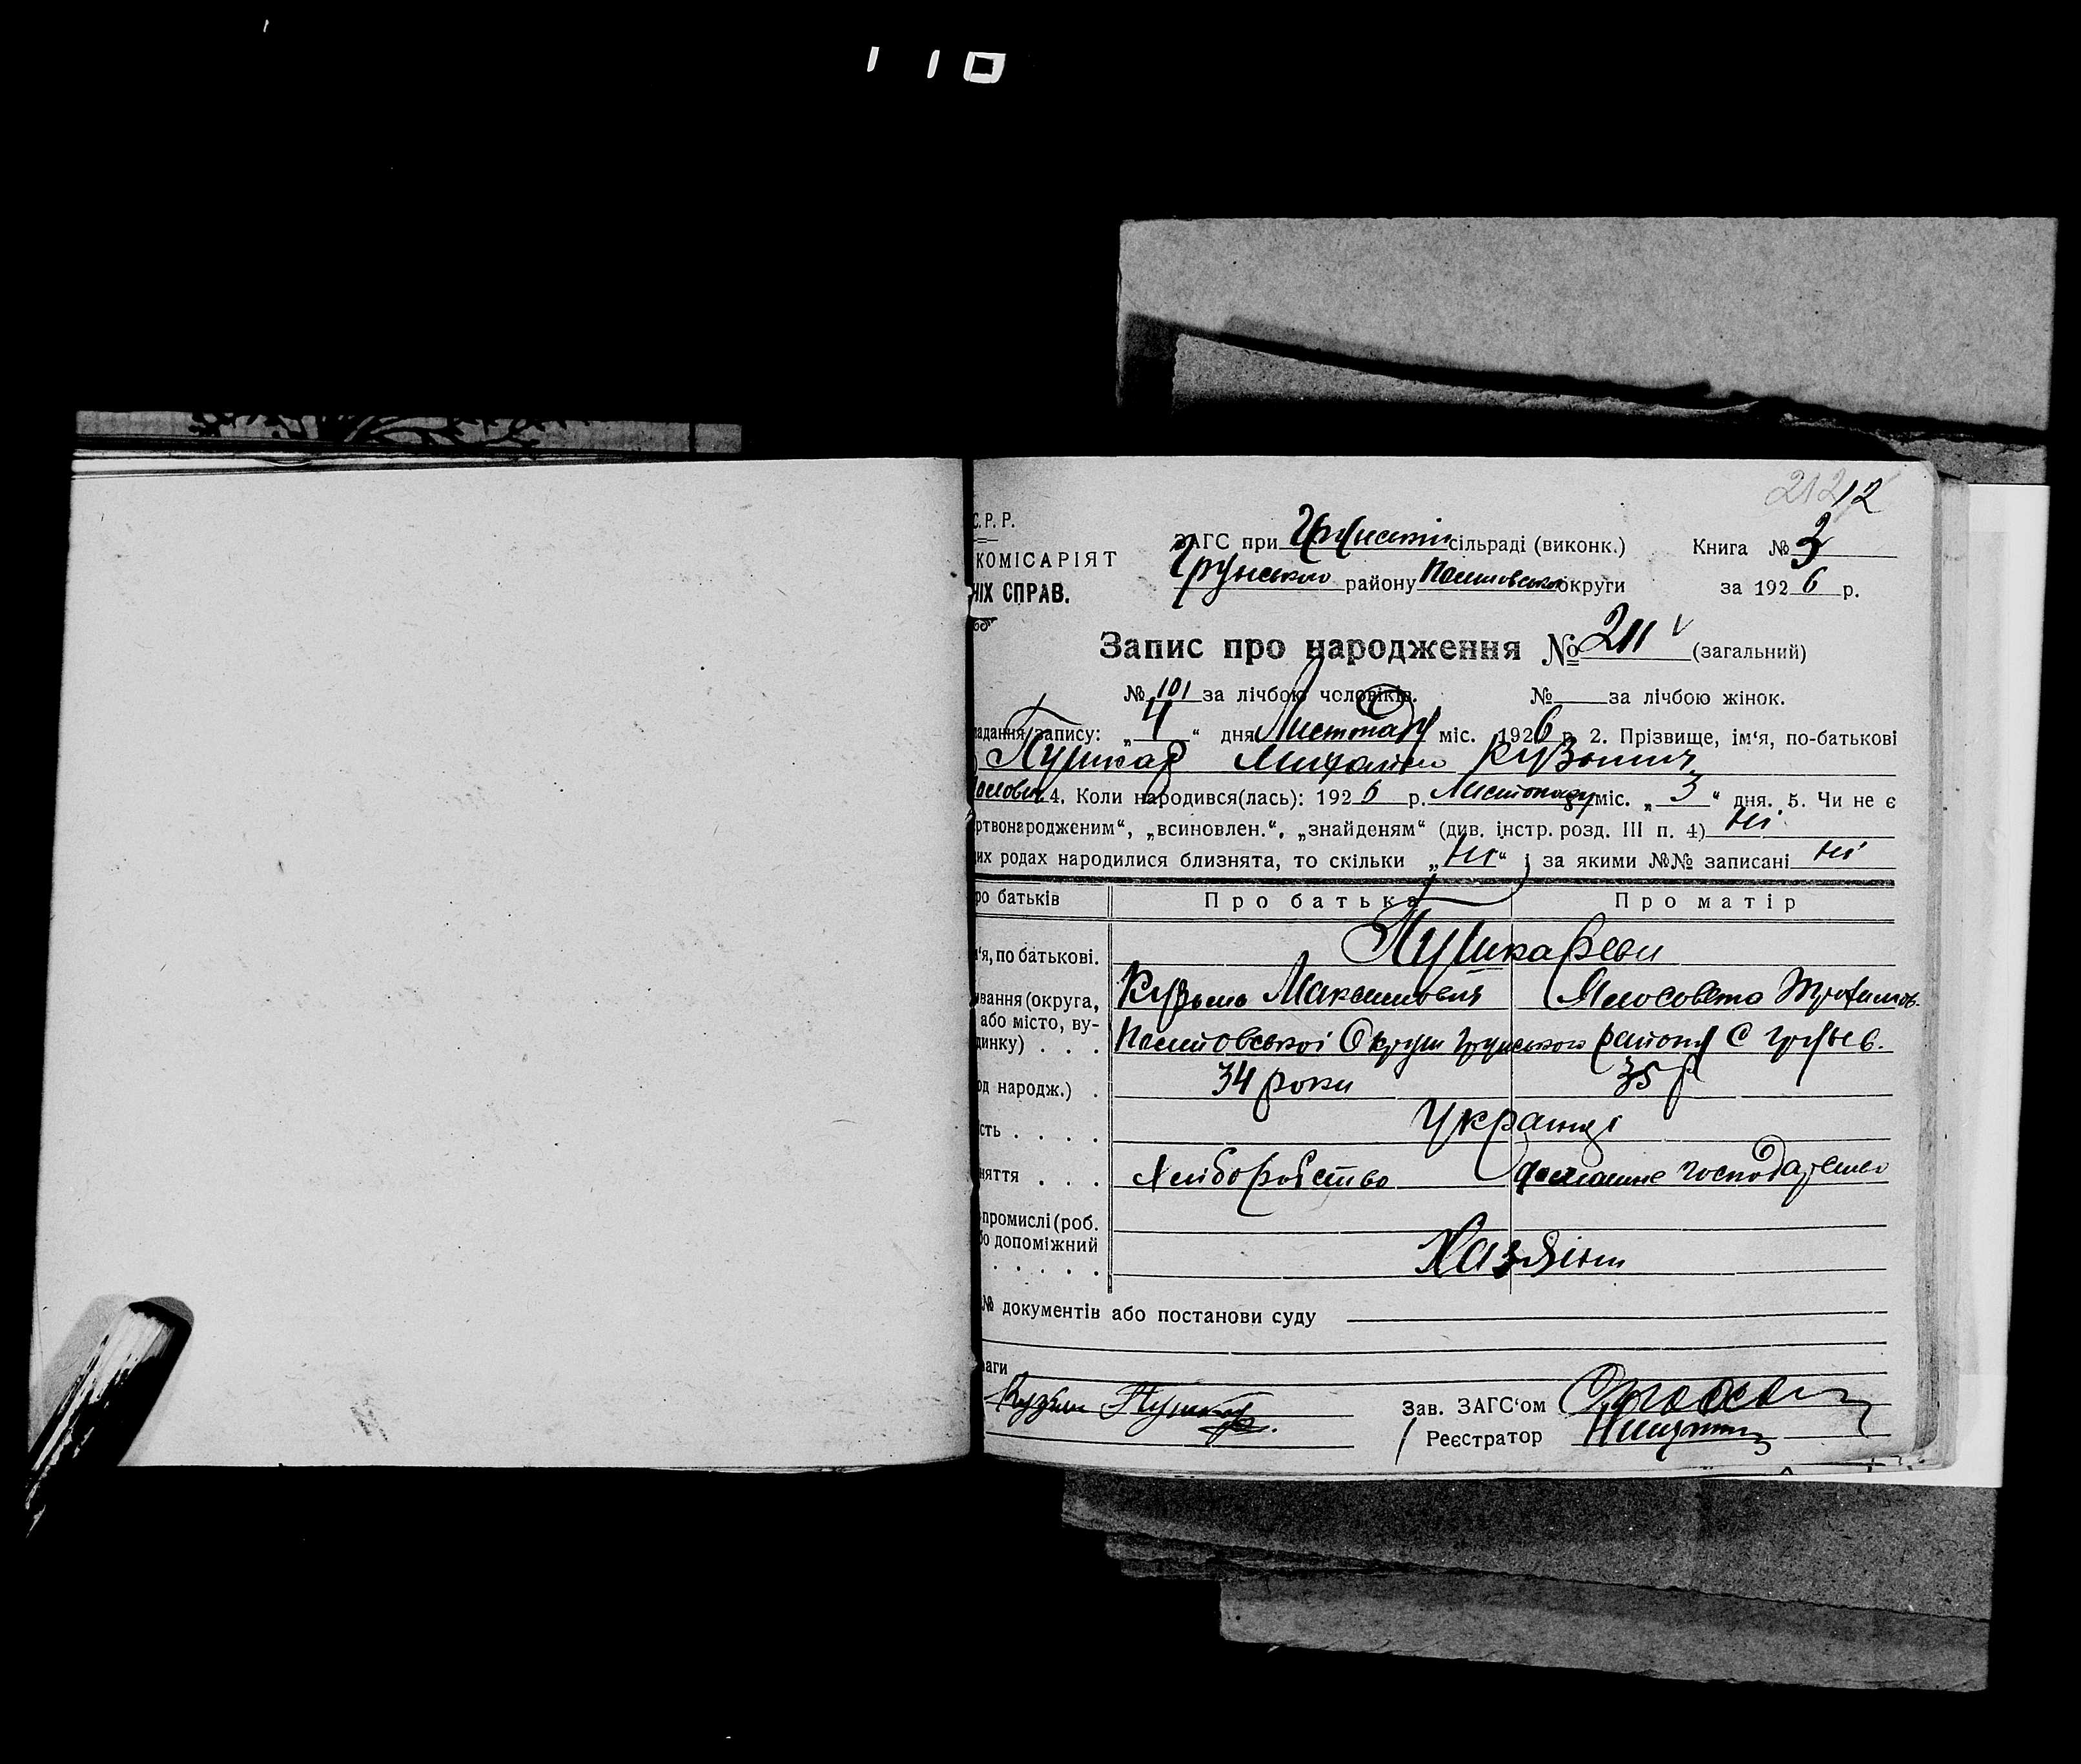 1 10
212 12
С.Р.Р.
ЗАГС при сільраді (виконк.) Книга № 3
КОМІСАРІЯТ
Грунського району округи за 1926 р.
НІХ СПРАВ.
Запис про народження № 211 (загальний)
№ 101 за лічбою чоловіків. № за лічбою жінок.
ладання запису: „4“ дня Листопаду міс. 1926 р. 2. Прізвище, ім‘я, по-батькові
Пушкар Михайло Кузьмич
4. Коли народився(лась): 1926 р. Листопаду міс. „3“ дня. 5. Чи не є
ртвонародженим“, „всиновлен.“, „знайденям“ (див. інстр. розд. III п. 4) Ні
их родах народилися близнята, то скільки „Ні“ ; за якими №№ записані Ні
ро батьків Про батька Про матір
Пушкареви
‘я, по батькові.
Кузьма Максимович Трохимов.
вання (округа,
або місто, ву-
динку) . . . Округи Грунського району С
од народж.) . 34 роки 35 р
сть . . . . Українці
няття . . . Хліборобство домашнє господарство
промислі (роб.
бо допоміжний
. . . . . Хазяіни
№ документів або постанови суду
аги
Кузьма Пушкар
Зав. ЗАГС‘ом
Реєстратор